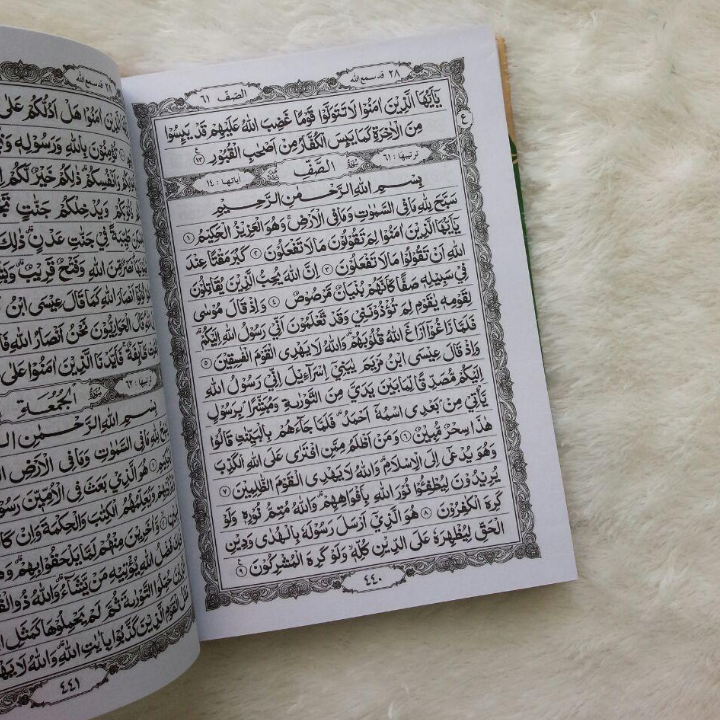 ٢٨ قد سمع الله
الصّفّ ٦١
يٰٓاَيُّهَا الَّذِيْنَ اٰمَنُوْا لَا تَتَوَلَّوْا قَوْمًا غَضِبَ اللّٰهُ عَلَيْهِمْ قَدْ يَىِٕسُوْا
مِنَ الْاٰخِرَةِ كَمَا يَىِٕسَ الْكُفَّارُ مِنْ اَصْحٰبِ الْقُبُوْرِ ١٣
ترتيبها : ٦١ سورة الصَّفّ اٰياتها : ١٤
بِسْمِ اللّٰهِ الرَّحْمٰنِ الرَّحِيْمِ
سَبَّحَ لِلّٰهِ مَا فِى السَّمٰوٰتِ وَمَا فِى الْاَرْضِۚ وَهُوَ الْعَزِيْزُ الْحَكِيْمُ ١
يٰٓاَيُّهَا الَّذِيْنَ اٰمَنُوْا لِمَ تَقُوْلُوْنَ مَا لَا تَفْعَلُوْنَ ٢ كَبُرَ مَقْتًا عِنْدَ
اللّٰهِ اَنْ تَقُوْلُوْا مَا لَا تَفْعَلُوْنَ ٣ اِنَّ اللّٰهَ يُحِبُّ الَّذِيْنَ يُقَاتِلُوْنَ
فِيْ سَبِيْلِهٖ صَفًّا كَاَنَّهُمْ بُنْيَانٌ مَّرْصُوْصٌ ٤ وَاِذْ قَالَ مُوْسٰى
لِقَوْمِهٖ يٰقَوْمِ لِمَ تُؤْذُوْنَنِيْ وَقَدْ تَّعْلَمُوْنَ اَنِّيْ رَسُوْلُ اللّٰهِ اِلَيْكُمْۗ
فَلَمَّا زَاغُوْٓا اَزَاغَ اللّٰهُ قُلُوْبَهُمْۗ وَاللّٰهُ لَا يَهْدِى الْقَوْمَ الْفٰسِقِيْنَ ٥
وَاِذْ قَالَ عِيْسَى ابْنُ مَرْيَمَ يٰبَنِيْٓ اِسْرَاۤءِيْلَ اِنِّيْ رَسُوْلُ اللّٰهِ
اِلَيْكُمْ مُّصَدِّقًا لِّمَا بَيْنَ يَدَيَّ مِنَ التَّوْرٰىةِ وَمُبَشِّرًاۢ بِرَسُوْلٍ
يَّأْتِيْ مِنْۢ بَعْدِى اسْمُهٗٓ اَحْمَدُۗ فَلَمَّا جَاۤءَهُمْ بِالْبَيِّنٰتِ قَالُوْا
هٰذَا سِحْرٌ مُّبِيْنٌ ٦ وَمَنْ اَظْلَمُ مِمَّنِ افْتَرٰى عَلَى اللّٰهِ الْكَذِبَ
وَهُوَ يُدْعٰىٓ اِلَى الْاِسْلَامِۗ وَاللّٰهُ لَا يَهْدِى الْقَوْمَ الظّٰلِمِيْنَ ٧
يُرِيْدُوْنَ لِيُطْفِـُٔوْا نُوْرَ اللّٰهِ بِاَفْوَاهِهِمْۗ وَاللّٰهُ مُتِمُّ نُوْرِهٖ وَلَوْ
كَرِهَ الْكٰفِرُوْنَ ٨ هُوَ الَّذِيْٓ اَرْسَلَ رَسُوْلَهٗ بِالْهُدٰى وَدِيْنِ
الْحَقِّ لِيُظْهِرَهٗ عَلَى الدِّيْنِ كُلِّهٖۙ وَلَوْ كَرِهَ الْمُشْرِكُوْنَ ٩
٤٤٠
ع
يٰٓاَيُّهَا الَّذِيْنَ اٰمَنُوْا هَلْ اَدُلُّكُمْ عَلٰى
تُؤْمِنُوْنَ بِاللّٰهِ وَرَسُوْلِهٖ
وَاَنْفُسِكُمْۗ ذٰلِكُمْ خَيْرٌ لَّكُمْ
وَيُدْخِلْكُمْ جَنّٰتٍ
طَيِّبَةً فِيْ جَنّٰتِ عَدْنٍۗ ذٰلِكَ
نَصْرٌ مِّنَ اللّٰهِ وَفَتْحٌ قَرِيْبٌۗ
اَنْصَارَ اللّٰهِ كَمَا قَالَ عِيْسَى ابْنُ
قَالَ الْحَوَارِيُّوْنَ نَحْنُ اَنْصَارُ اللّٰهِ
طَّاۤىِٕفَةٌۚ فَاَيَّدْنَا الَّذِيْنَ اٰمَنُوْا عَلٰى
ترتيبها : ٦٢ سورة الجُمُعَة
بِسْمِ اللّٰهِ الرَّحْمٰنِ
لِلّٰهِ مَا فِى السَّمٰوٰتِ وَمَا فِى الْاَرْضِ
هُوَ الَّذِيْ بَعَثَ فِى الْاُمِّيّٖنَ
وَيُعَلِّمُهُمُ الْكِتٰبَ وَالْحِكْمَةَ وَاِنْ
وَّاٰخَرِيْنَ مِنْهُمْ لَمَّا يَلْحَقُوْا بِهِمْۗ
فَضْلُ اللّٰهِ يُؤْتِيْهِ مَنْ يَّشَاۤءُۗ وَاللّٰهُ
حُمِّلُوا التَّوْرٰىةَ ثُمَّ لَمْ يَحْمِلُوْهَا كَمَثَلِ
الْقَوْمِ الَّذِيْنَ كَذَّبُوْا بِاٰيٰتِ اللّٰهِۗ وَاللّٰهُ لَا
٤٤١